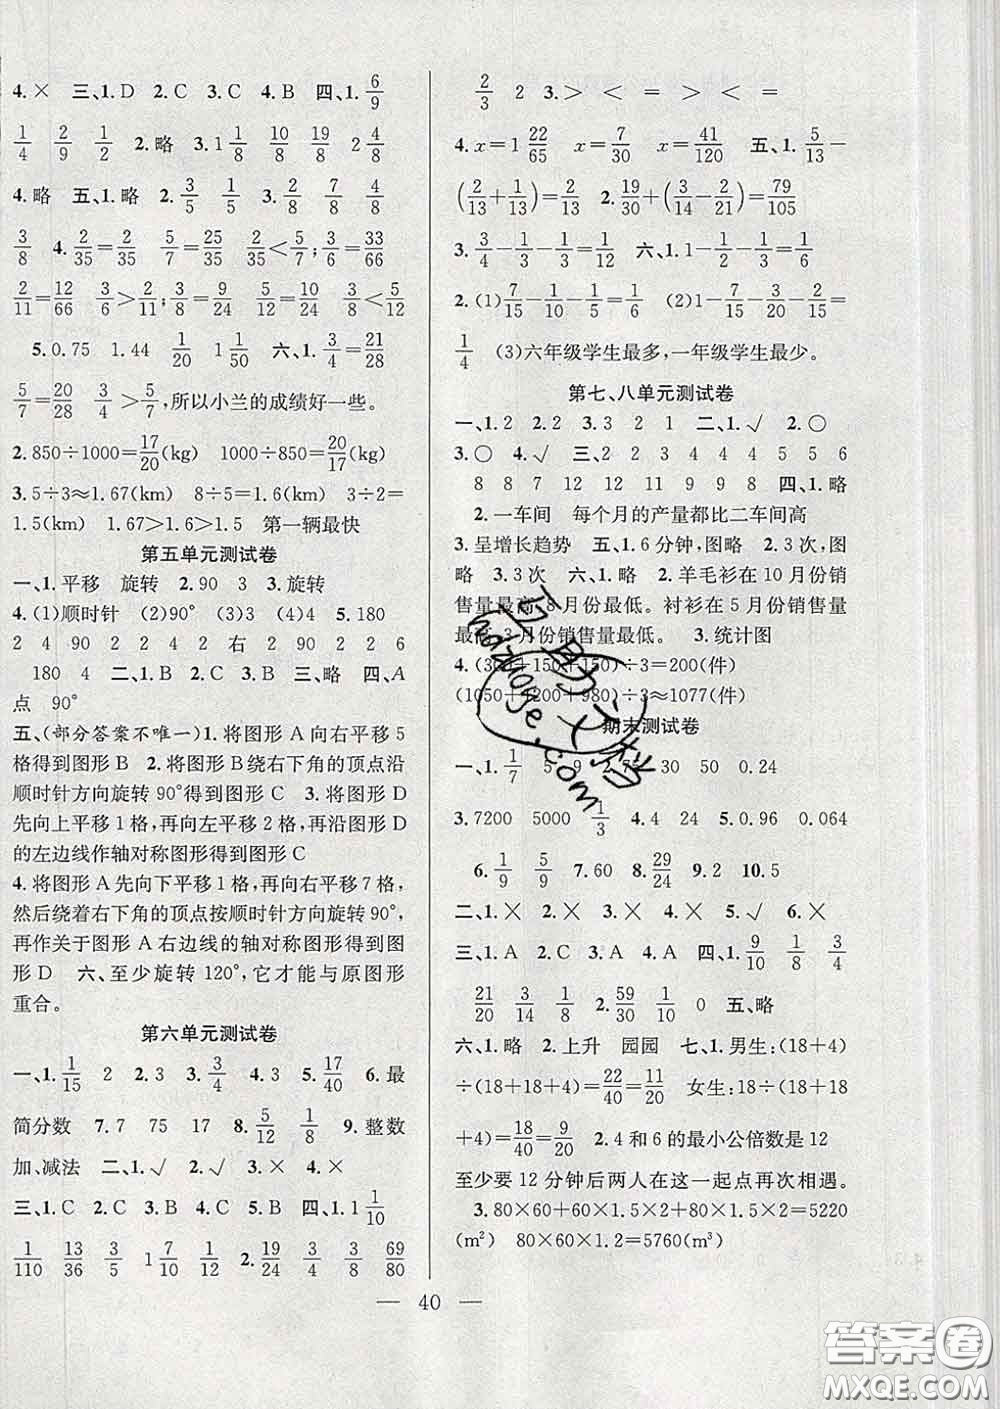 4.× 三、1.D 2.C 3.C 4.B 四、1.6/9
1/4 2/9 1/2 2.略 3.1 1/8 10/8 19/8 2 4/8
4.略 五、1.略 2.3/5 1/5 3.2/8 7/8 4/8
3/8 4.2/35=2/35 5/7=25/35 2/35<5/7;3/6=33/66
2/11=12/66 3/6>2/11;3/8=9/24 5/12=10/24 3/8<5/12
5.0.75 1.44 1/20 1 1/50 六、1.3/4=21/28
5/7=20/28 3/4>5/7,所以小兰的成绩好一些。
2.850÷1000=17/20(kg) 1000÷850=20/17(kg)
3.5÷3≈1.67(km) 8÷5=1.6(km) 3÷2=
1.5(km) 1.67>1.6>1.5 第一辆最快
第五单元测试卷
一、1.平移 旋转 2.90 3 3.旋转
4.(1)顺时针 (2)90° (3)3 (4)4 5.180
2 4 90 2 2 4 2 右 2 90 2 2 6
180 4 二、1.B 2.C 3.B 三、略 四、A
点 90°
五、(部分答案不唯一)1.将图形A向右平移5
格得到图形B 2.将图形B绕右下角的顶点沿
顺时针方向旋转90°得到图形C 3.将图形D
先向上平移1格,再向左平移2格,再沿图形D
的左边线作轴对称图形得到图形C
4.将图形A先向下平移1格,再向右平移7格,
然后绕着右下角的顶点按顺时针方向旋转90°,
再作关于图形A右边线的轴对称图形得到图
形D 六、至少旋转120°,它才能与原图形
重合。
第六单元测试卷
一、1.1/15 2 2.3 3.3/4 4.3 5.17/40 6.最
简分数 7.7 75 17 8.5/12 1/8 9.整数
加、减法 二、1.√ 2.√ 3.× 4.×
三、1.C 2.C 3.B 4.C 5.B 四、1.1 1/10
1/110 13/36 3/5 1 7/10 1/12 2.19/24 3/14 3/8 69/80
2/3 2 3.> < = > < =
4.x=1 22/65 x=7/30 x=41/120 五、1.5/13-
(2/13+1/13)=2/13 2.19/30+(3/14-2/21)=79/105
3.3/4-1/3-1/3=1/12 六、1.1-1/2-1/3=1/6
2.(1)7/15-1/10-1/5=1/6 (2)1-7/15-3/20-2/15=
1/4 (3)六年级学生最多,一年级学生最少。
第七、八单元测试卷
一、1.2 2.2 3.2 1 2 二、1.√ 2.○
3.○ 4.√ 三、2 2 3 4 4 2 5 5 6
8 8 7 12 12 11 8 7 7 四、1.略
2.一车间 每个月的产量都比二车间高
3.呈增长趋势 五、1.6分钟,图略 2.3次,图
略 3.3次 六、1.略 2.羊毛衫在10月份销
售量最高,8月份最低。衬衫在5月份销售量
最高,3月份销售量最低。 3.统计图
4.(300+150+150)÷3=200(件)
(1050+1200+980)÷3≈1077(件)
期末测试卷
一、1.1/7 5 9 2.75 30 50 0.24
3.7200 5000 1/3 4.4 24 5.0.96 0.064
6.1/9 5/9 7.60 8.29/24 9.2 10.5
二、1.× 2.× 3.× 4.× 5.√ 6.×
三、1.A 2.C 3.A 4.A 四、1.9/10 1/8 3/4
21/20 3/14 8/15 2.59/30 1/10 0 五、略
六、1.略 2.上升 园园 七、1.男生:(18+4)
÷(18+18+4)=22/40=11/20 女生:18÷(18+18
+4)=18/40=9/20 2.4和6的最小公倍数是12
至少要12分钟后两人在这一起点再次相遇。
3.80×60+60×1.5×2+80×1.5×2=5220
(m²) 80×60×1.2=5760(m³)
— 40 —
答案圈
MXQE.COM